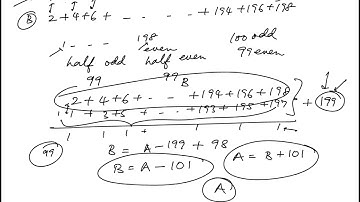 B 2 + 4 + 6 + - - - + 194 + 196 + 198
1 - - - 198
half odd half even 100 odd
99 99 99 even
B
2 + 4 + 6 + - - - + 194 + 196 + 198
1 + 3 + 5 + - - - + 193 + 195 + 197 + 199
1 1 1 + 1 1 1
99 B = A - 199 + 98
B = A - 101 A = B + 101
A